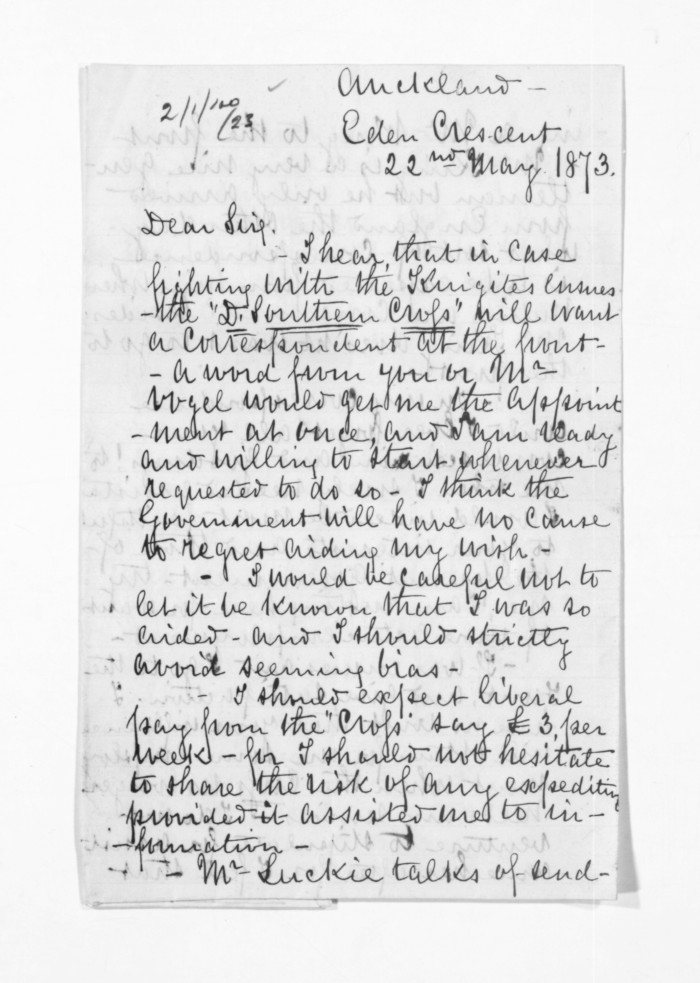 Auckland -
Eden Crescent
22nd May 1873.
Dear Sir,
- I hear, that in case
fighting with the Kingites ensues
- the "D. Southern Cross" will want
a correspondent at the front -
- a word from you or Mr -
Vogel would get me the appoint
- ment at once, and I am ready
and willing to start whenever
requested to do so - I think the
Government will have no cause
to regret aiding my wish. -
- I would be careful not to
let it be known that I was so
aided - and I should strictly
avoid seeming bias -
- I should expect liberal
pay from the "Cross" say £3, per
week - for I should not hesitate
to share the risk of any expedition
provided it assisted me to in -
- formation -
- Mr Luckie talks of send -